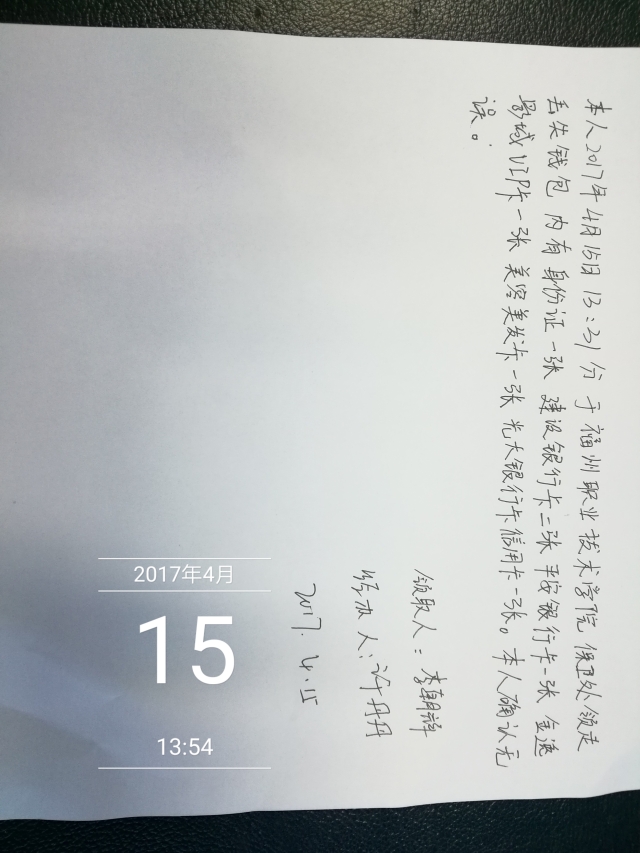 本人2017年4月15日13:31分于福州职业技术学院保卫处领走
丢失钱包内有身份证一张 建设银行卡二张 平安银行卡一张 金逸
影城VIP卡一张 美容美发卡一张 光大银行卡信用卡一张。本人确认无
误。
领取人:李朝辩
经办人:许丹丹
2017.4.15
2017年4月
15
13:54